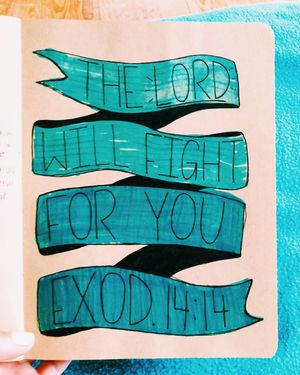 THE LORD
WILL FIGHT
FOR YOU
EXOD. 14:14